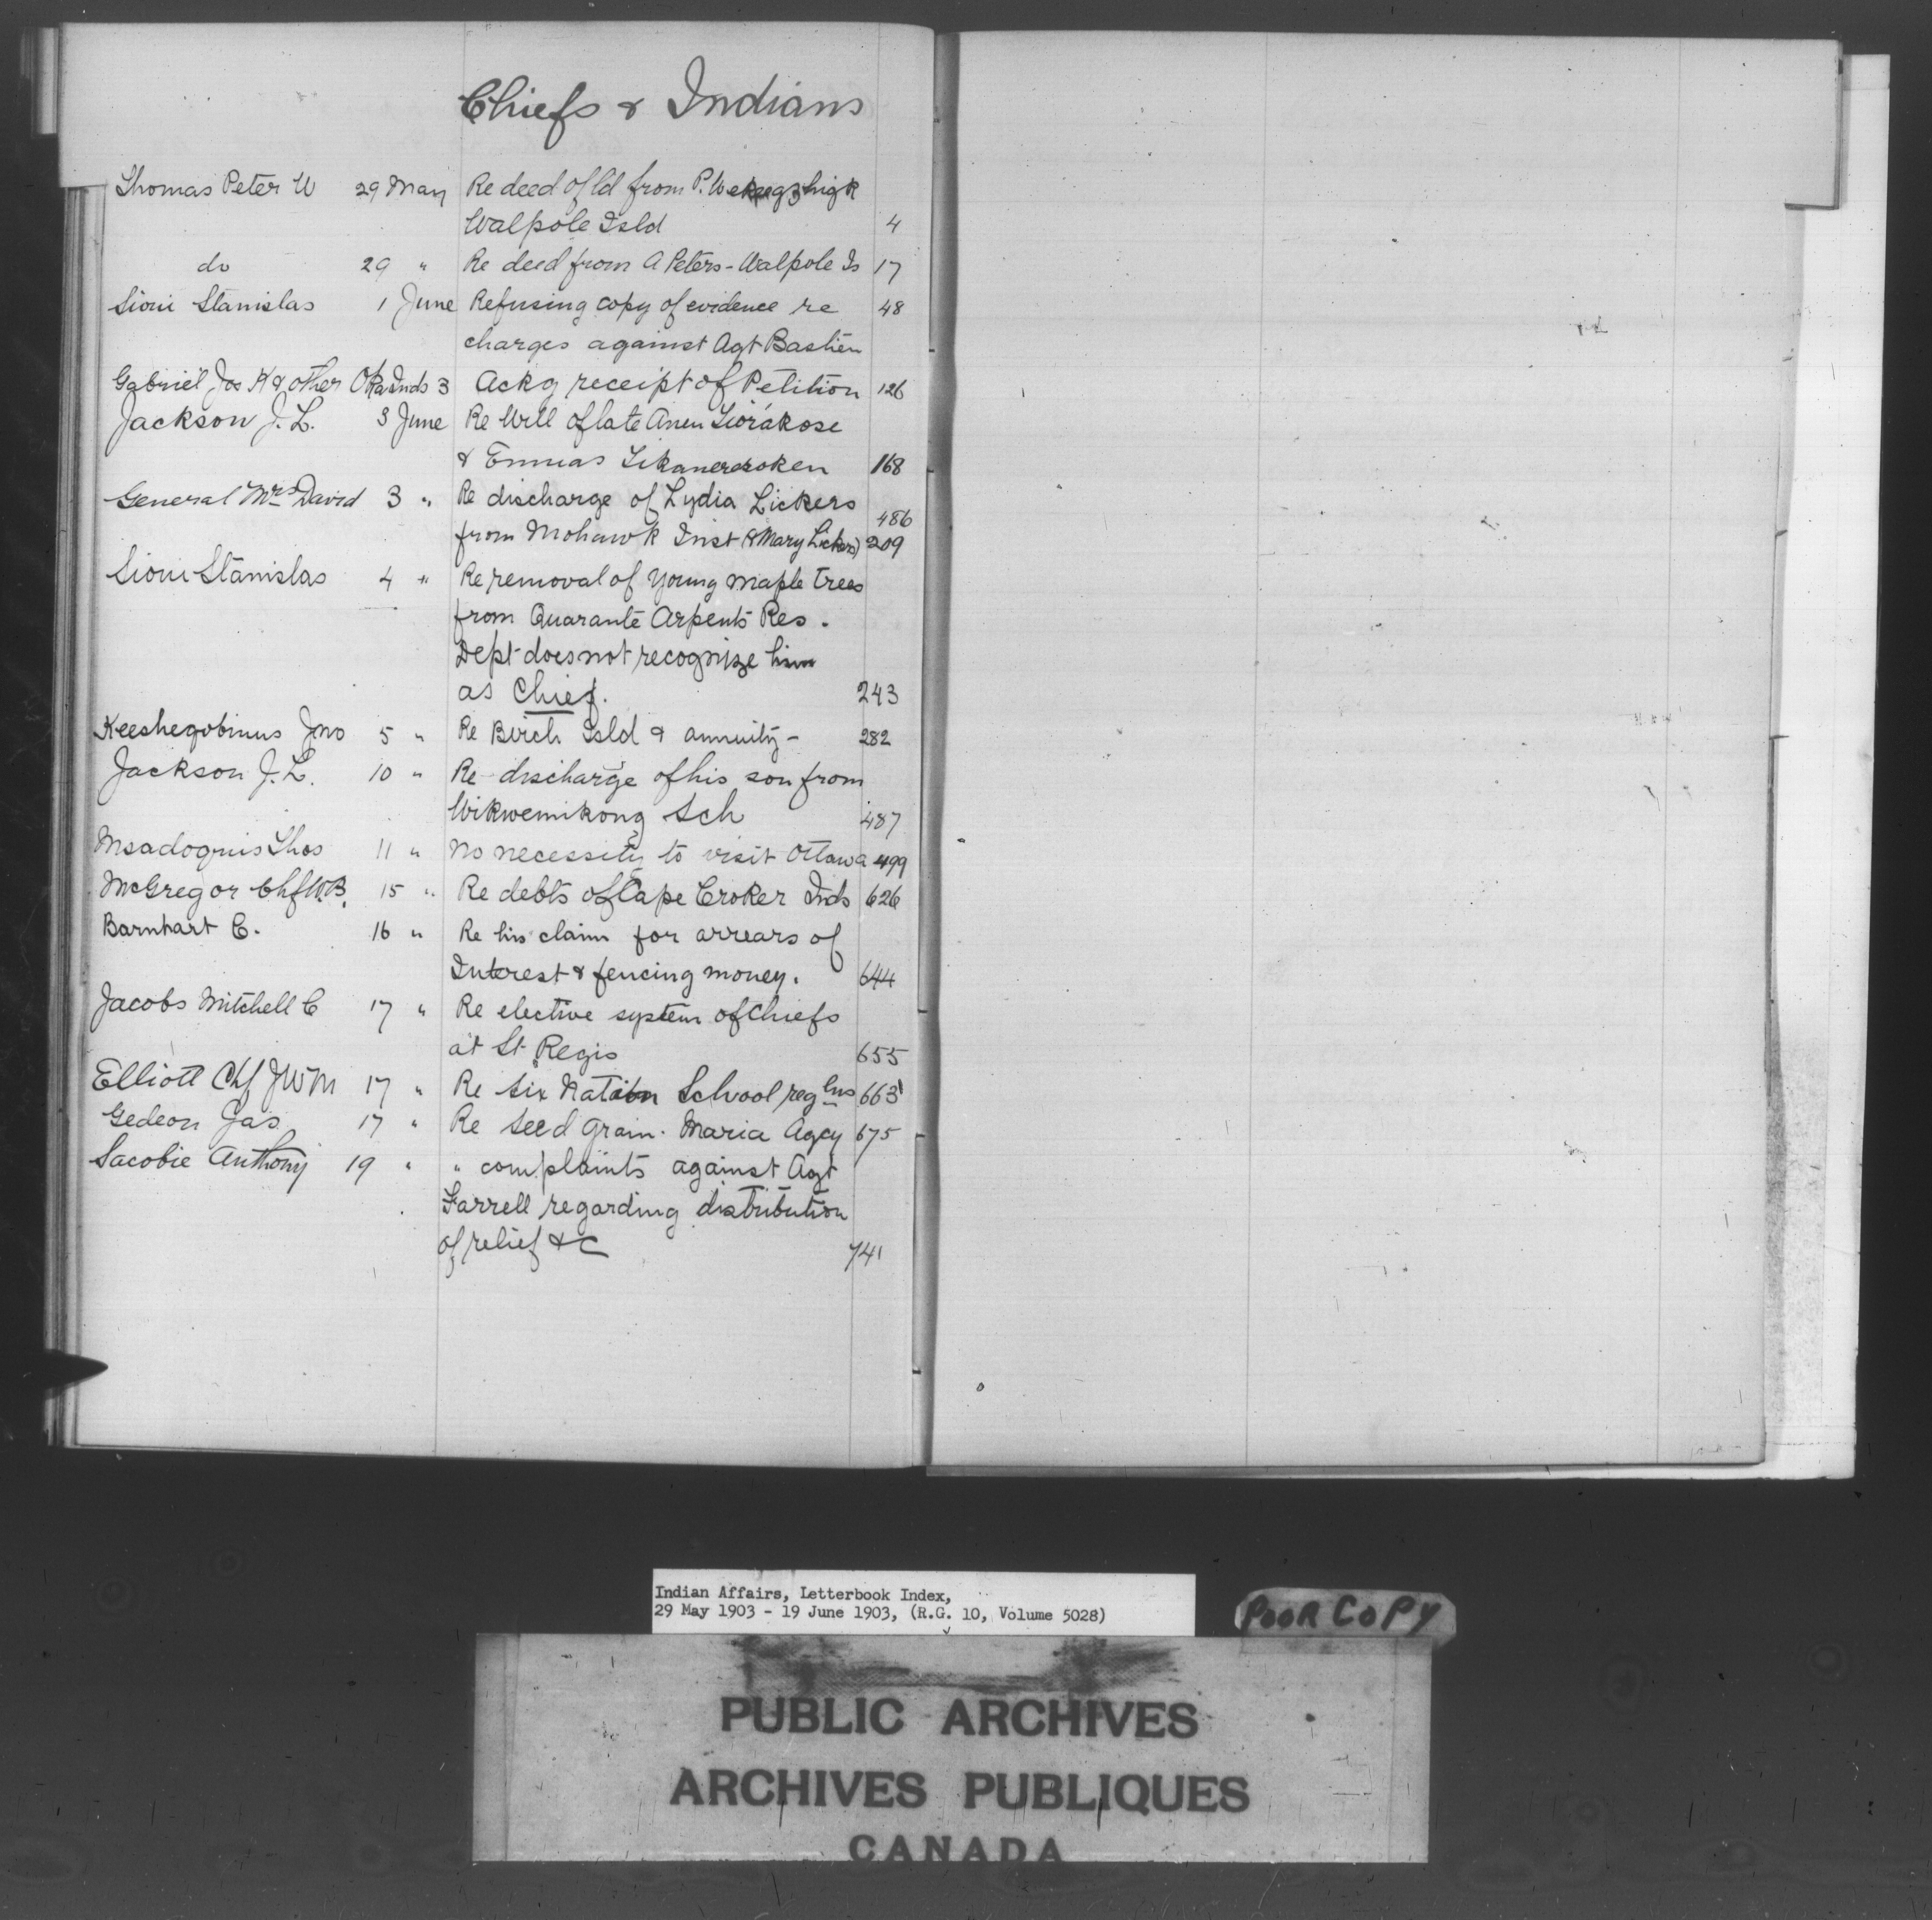 Chiefs & Indians
Thomas Peter W 29 May Re deed of ld from P.
Walpole Isld 4
do 29 " Re deed from A Peters - Walpole Is 17
Sioui Stanislas 1 June Refusing copy of evidence re 48
charges against Agt Bastien
Gabriel Jos K & other Oka Inds 3 Ackg receipt of Petition 126
Jackson J. L. 3 June Re Will of late Anen
& Ennias 168
General Mrs David 3 " Re discharge of Lydia Lickers 486
from Mohawk Inst (& Mary Lickers) 209
Sioui Stanislas 4 " Re removal of young maple trees
from Quarante Arpents Res.
Dept does not recognize him
as Chief. 243
Keeshegobinus Jno 5 " Re Birch Isld & annuity - 282
Jackson J. L. 10 " Re discharge of his son from
Wikwemikong Sch 487
Msadoquis Thos 11 " no necessity to visit Ottawa 499
McGregor Chf W.B. 15 " Re debts of Cape Croker Inds 626
Barnhart C. 16 " Re his claim for arrears of
Interest & fencing money. 644
Jacobs Mitchell C 17 " Re elective system of Chiefs
at St Regis 655
Elliott Chf J W M 17 " Re Six Nation School reglns 663
Gedeon Jas 17 " Re Seed Grain. Maria Agcy 675
Sacobie Anthony 19 " " complaints against Agt
Farrell regarding distribution
of relief &c 741
Indian Affairs, Letterbook Index,
29 May 1903 - 19 June 1903, (R.G. 10, Volume 5028)
POOR COPY
PUBLIC ARCHIVES
ARCHIVES PUBLIQUES
CANADA